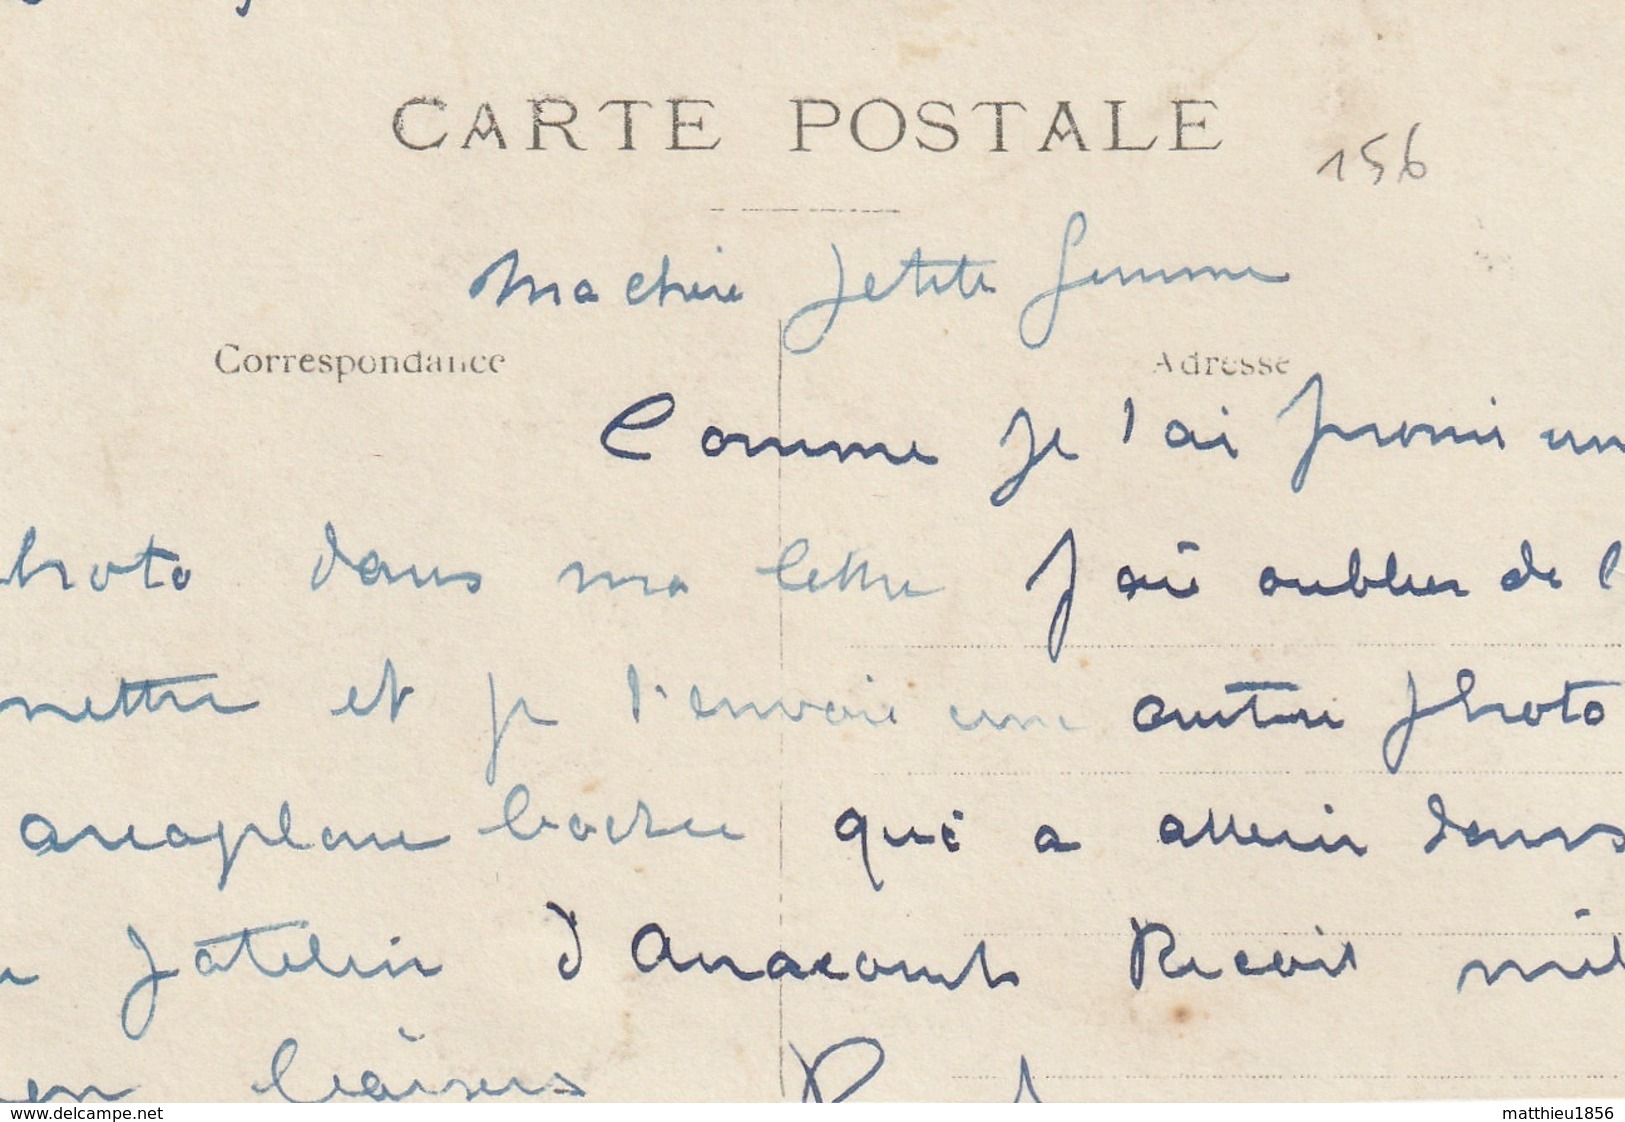 CARTE POSTALE
156
Ma chere petite femme
Correspondance
Adresse
Comme je t'ai promi un
hoto dans ma lettre J ai oublier de l
mettre et je t'envoie une autre photo
areoplane boche qui a atterir dans
d'Anacourt Recoit mil
baisers
www.delcampe.net
matthieu1856